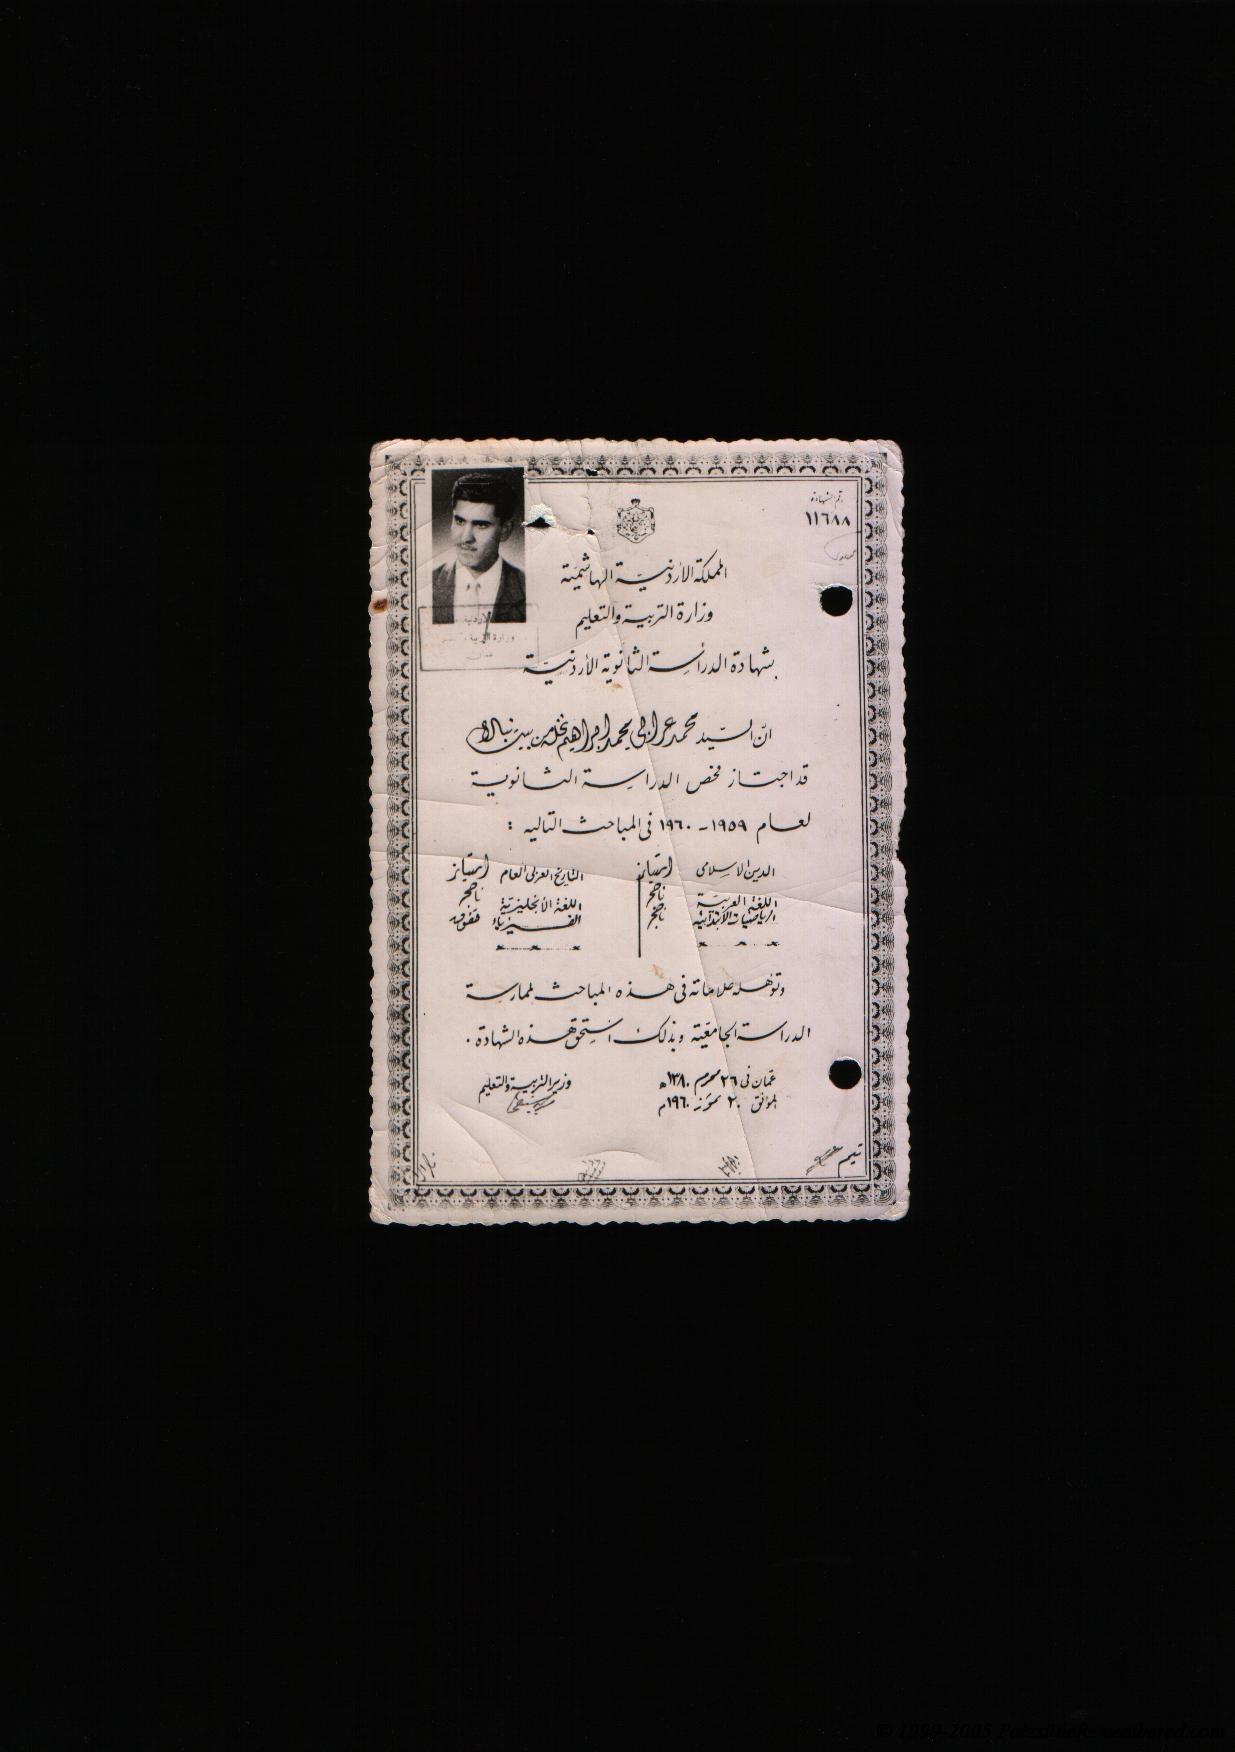 رقم الشهادة
١١٦٨٨
المملكة الأردنيّة الهاشميّة
وزارة التربية والتعليم
شهادة الدراسة الثانوية الأردنيّة
انّ السيّد محمد عرابي محمد ابراهيم نخله من بيت نبالا
قد اجتاز فحص الدراسة الثانوية
لعام ١٩٥٩ - ١٩٦٠ في المباحث التالية :
الدين الاسلامي امتياز التاريخ العربي العام امتياز
اللغة العربيّة ناجح اللغة الأنجليزيّة ناجح
الرياضيات الابتدائية ناجح الفيزياء
وتؤهله علاماته في هذه المباحث لممارسة
الدراسة الجامعيّة وبذلك استحق هذه الشهادة .
عمّان في ٢٦ محرم ١٣٨٠ هـ وزير التربية والتعليم
الموافق ٢٠ تموز ١٩٦٠ م
وزارة التربية
عمان
© 1999-2005 PalestineRemembered.com